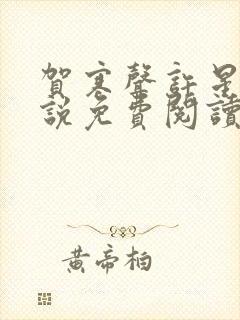 賀寒聲許是
說免費閱讀
黃帝柏